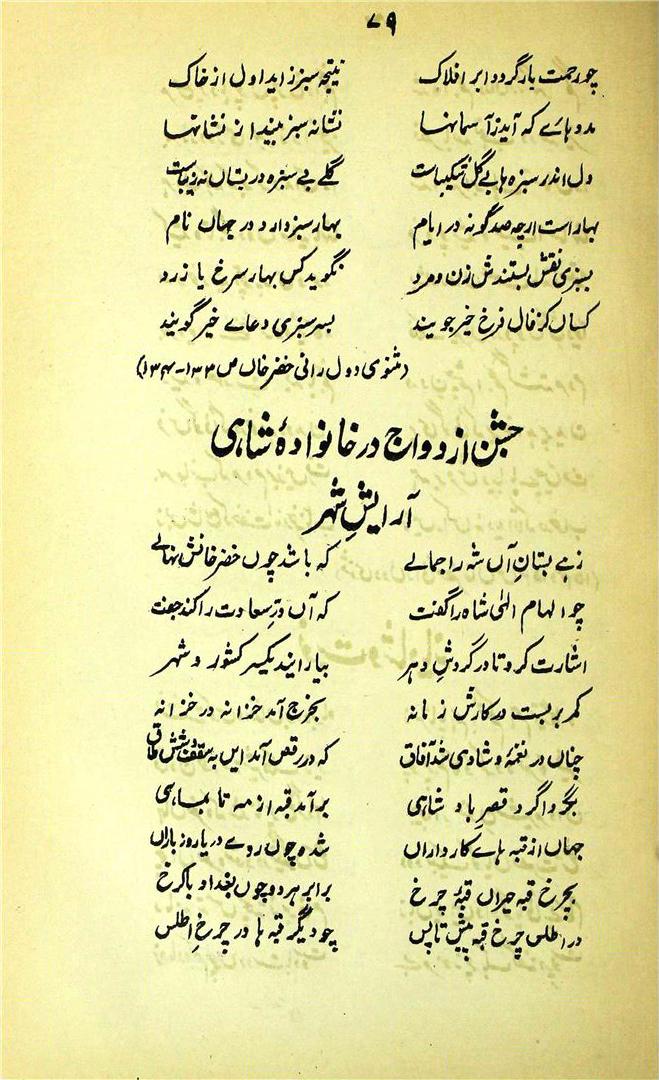 ۷۹
چو رحمت بار گردد ابر افلاک نتیجہ سبز زاید اول از خاک
مدد ہاے کہ آید ز آسمانہا نشانہ سبز بیند از نشانہا
دل اندر سبزہ ہا بے گل شکیباست گلے بے سبزہ در بستاں نہ زیباست
بہار است ارچہ صد گونہ در ایام بہار سبز دارد در جہاں نام
بسبزی نقش بستندش زن و مرد نگوید کس بہار سرخ یا زرد
کساں کز فال فرخ خیر جویند بسر سبزی دعاے خیر گویند
(مثنوی دول رانی خضر خاں ص ۱۳۳-۱۳۴)
جشن ازدواج در خانوادۂ شاہی
آرایشِ شہر
زہے بستانِ آں شہ را جمالے کہ باشد چوں خضر خانش نہالے
چو الہام الٰہی شاہ را گفت کہ آں درِّ سعادت را کند جفت
اشارت کرد تا در گردشِ دہر بیارایند یکسر کشور و شہر
کمر بربست در کارش زمانہ بخرج آمد خزانہ در خزانہ
چناں در نغمہ و شادی شد آفاق کہ در رقص آمد ایں بہ سقف شش طاق
بگرداگرد قصرِ باد شاہی برآمد قبہ از مہ تا بماہی
جہاں از قبہ ہاے کارداراں شدہ چوں روے دریا روز باراں
بچرخ قبہ حیراں قبۂ چرخ برابر ہر دو چوں بغداد با کرخ
در اطلس چرخ قبہ پیش تا پس چو دیگر قبہ ہا در چرخِ اطلس